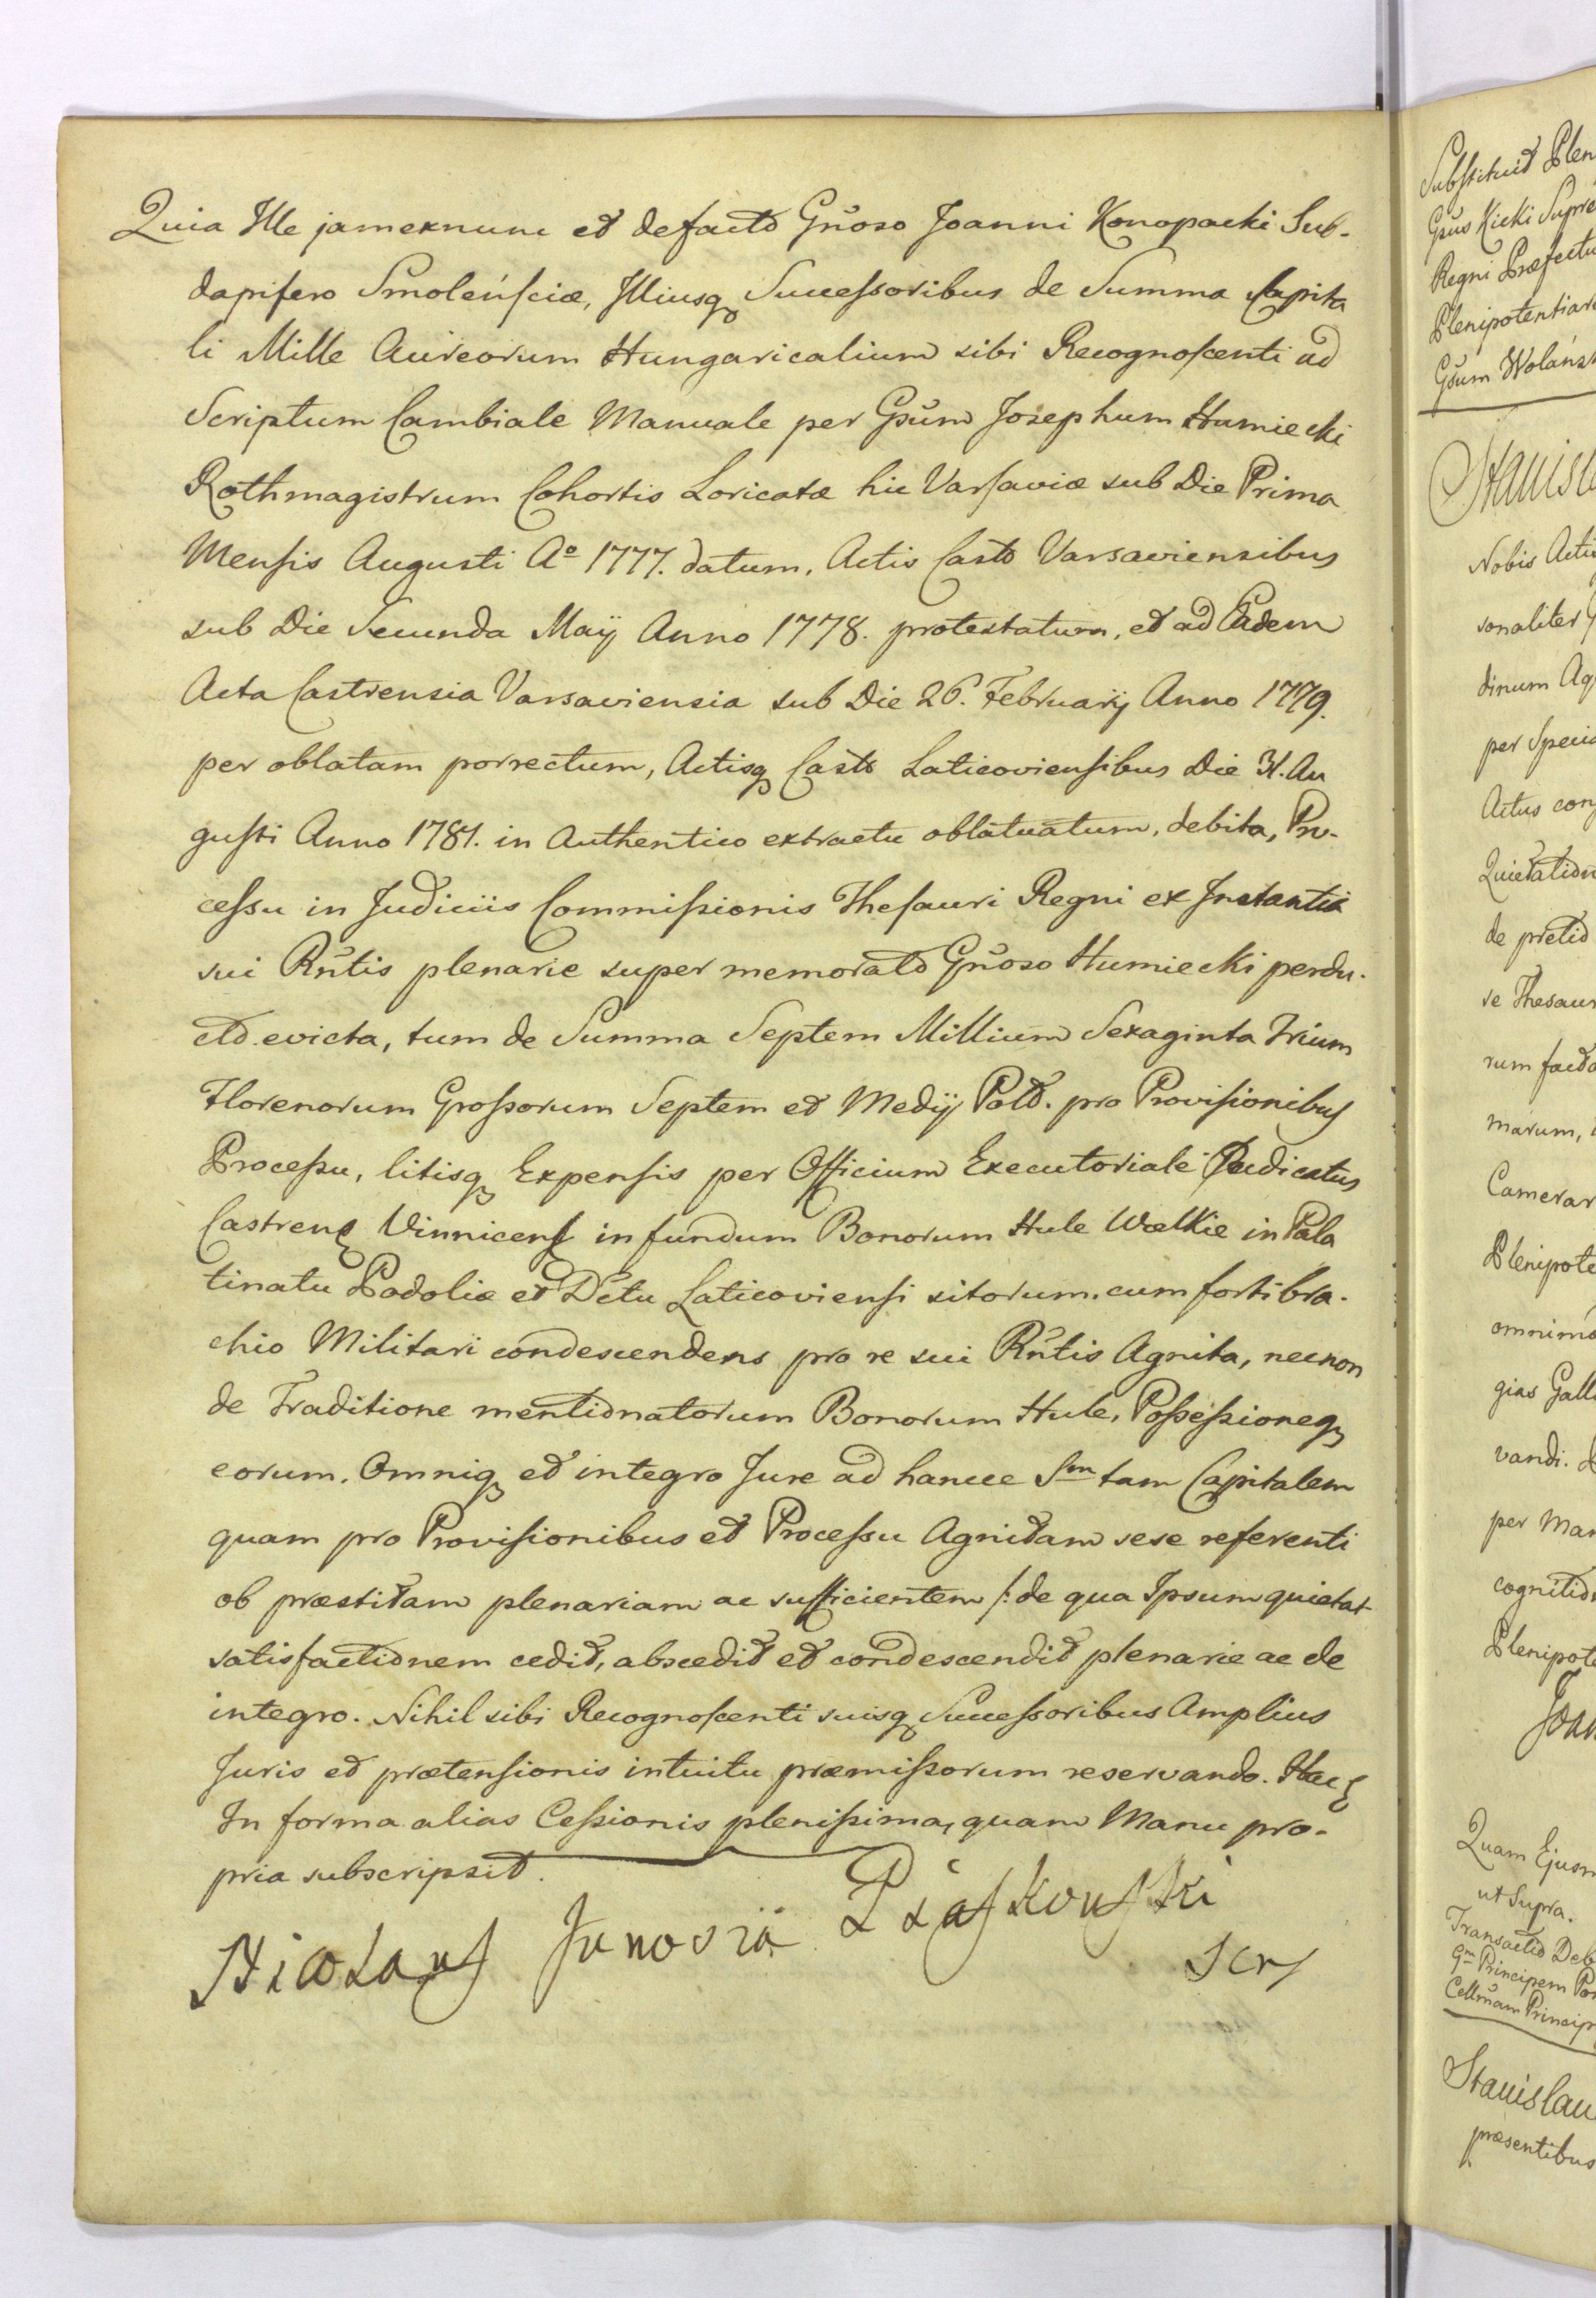 Quia Ille jamexnunc et defacto Gnoso Joanni Konopacki Sub-
dapifero Smolénsciæ, Illiusq Successoribus de Summa Capita
li Mille Aureorum Hungaricalium sibi Recognoscenti ad
Scriptum Cambiale Manuale per Gsum Josephum Humiecki
Rothmagistrum Cohortis Loricatæ hic Varsaviæ sub Die Prima
Mensis Augusti Aº 1777. datum, Actis Castr Varsaviensibus
sub Die Secunda Maÿ Anno 1778. protestatum, et ad Eadem
Acta Castrensia Varsaviensia sub Die 26. Februarij Anno 1779.
per oblatam porrectum, Actisq Castr Laticoviensibus Die 31. Au
gusti Anno 1781. in Authentico extractu oblatuatum, debita, Pro-
cessu in Judiciis Commissionis Thesauri Regni ex Instantia
sui Rntis plenarie super memorato Gnoso Humiecki perdu-
cto evicta, tum de Summa Septem Millium Sexaginta Trium
Florenorum Grossorum Septem et Medÿ Polo. pro Provisionibus
Processu, litisq Expensis per Officium Executoriale Judicatus
Castrens Vinnicens in fundum Bonorum Hule Wælkie in Pala
tinatu Podoliæ et Dctu Laticoviensi sitorum cum forti bra-
chio Militari condescendens pro re sui Rntis Agnita, necnon
de Traditione mentionatorum Bonorum Hule, Possessioneq
eorum. Omniq et integro Jure ad hancce Sm tam Capitalem
quam pro Provisionibus et Processu Agnitam sese referenti
ob præstitam plenariam ac sufficientem /: de qua Ipsum quietat
satisfactionem cedit, abscedit et condescendit plenarie ac de
integro. Nihil sibi Recognoscenti suisq Successoribus Amplius
Juris et prætensionis intuitu præmissorum reservando. Hac
In forma alias Cessionis plenissima, quam Manu pro-
pria subscripsit.
Nicolaus Junosza Piaskowski
Substituit Plen
Gsus Kicki Supre
Regni Præfectu
Plenipotentiar
Gsum Wolánsk
Stanisla
Nobis Actis
sonaliter G
dinum Ag
per Specia
Actus con
Quietation
de pretio
se Thesaur
rum facta
marum,
Camerar
Plenipote
omnimo
gias Gall
vandi.
per Man
cognition
Plenipote
Joan
Quam Ejusm
ut Supra.
Transactio Deb
Gm Principem Po
Cellmam Princip
Stanislau
præsentibus